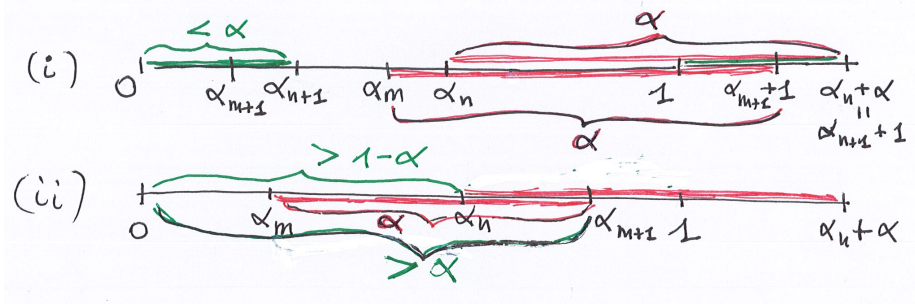 < α
α
(i)
0 α_{m+1} α_{n+1} α_m α_n 1 α_{m+1}+1 α_n+α
=
α_{n+1}+1
α
> 1-α
(ii)
0 α_m α α_n α_{m+1} 1 α_n+α
> α